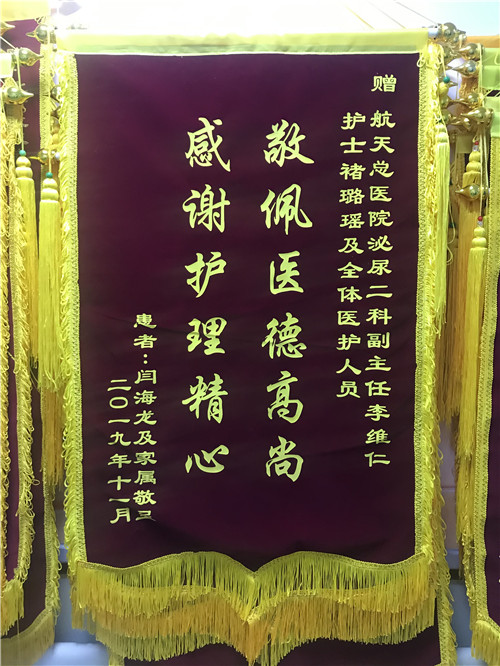 赠
航天总医院泌尿二科副主任李维仁
护士褚璐瑶及全体医护人员
敬佩医德高尚
感谢护理精心
患者：闫海龙及家属敬上
二〇一九年十一月